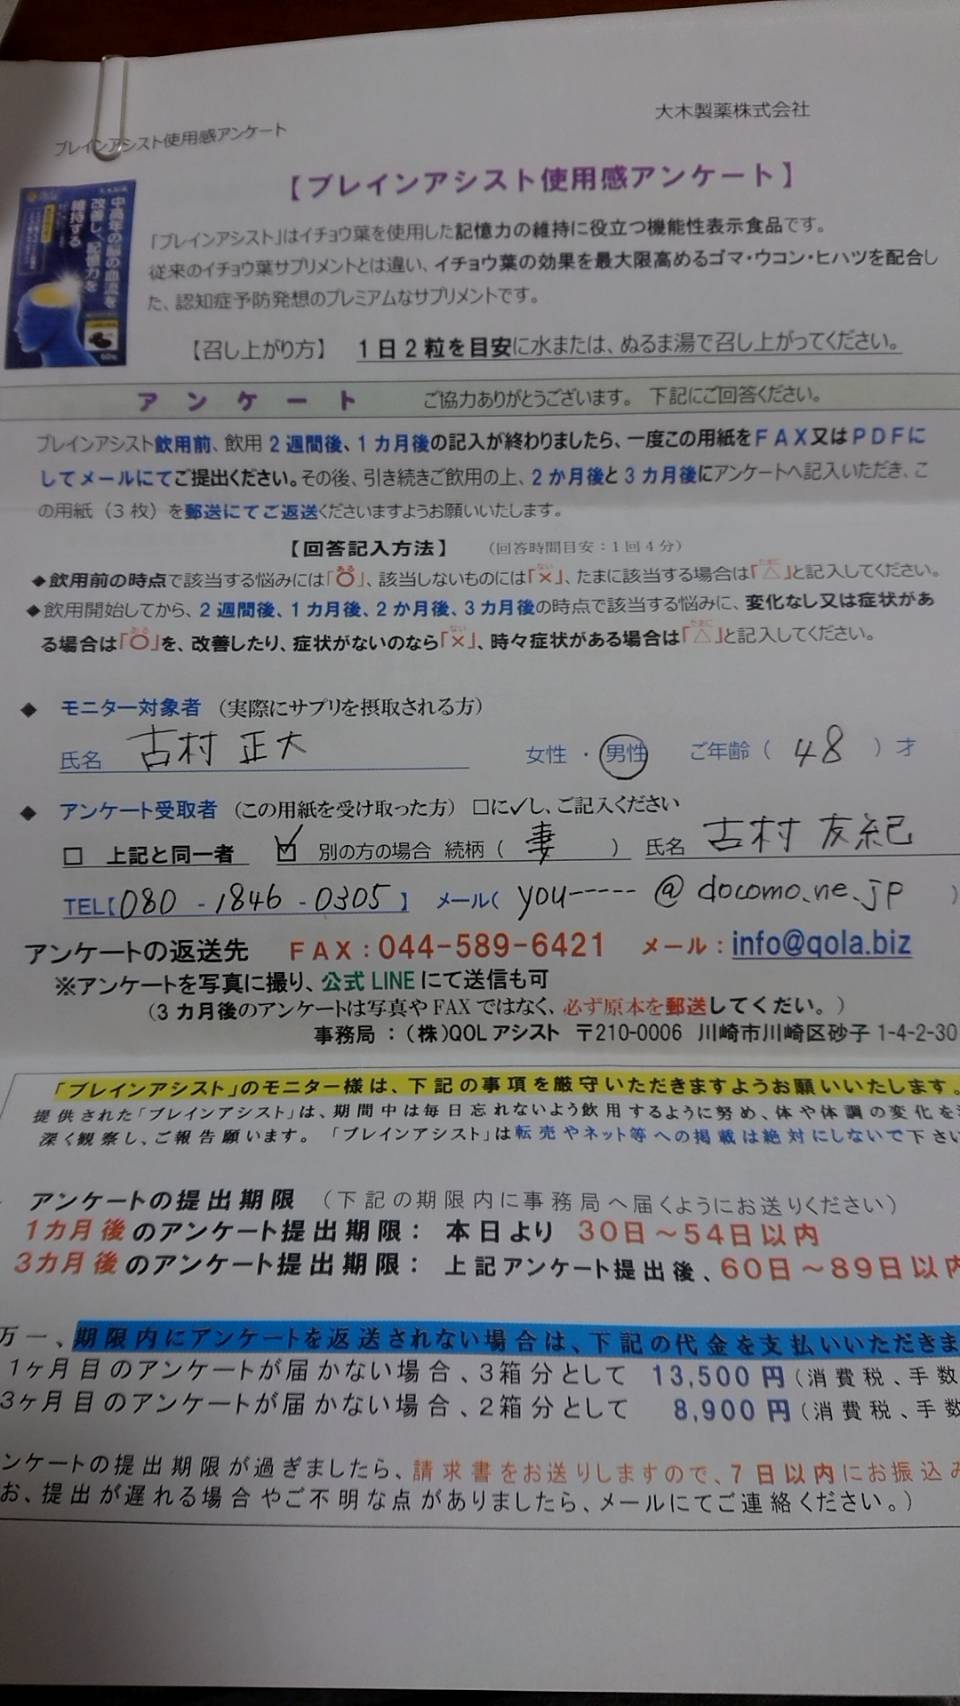 大木製薬株式会社
ブレインアシスト使用感アンケート
【ブレインアシスト使用感アンケート】
中高年の脳の血流を
改善し、記憶力を
維持する
「ブレインアシスト」はイチョウ葉を使用した記憶力の維持に役立つ機能性表示食品です。
従来のイチョウ葉サプリメントとは違い、イチョウ葉の効果を最大限高めるゴマ・ウコン・ヒハツを配合し
た、認知症予防発想のプレミアムなサプリメントです。
【召し上がり方】 1日2粒を目安に水または、ぬるま湯で召し上がってください。
アンケート ご協力ありがとうございます。 下記にご回答ください。
ブレインアシスト飲用前、飲用2週間後、1カ月後の記入が終わりましたら、一度この用紙をFAX又はPDFに
してメールにてご提出ください。その後、引き続きご飲用の上、2か月後と3カ月後にアンケートへ記入いただき、こ
の用紙（3枚）を郵送にてご返送くださいますようお願いいたします。
【回答記入方法】 （回答時間目安：1回4分）
◆飲用前の時点で該当する悩みには「○」、該当しないものには「×」、たまに該当する場合は「△」と記入してください。
◆飲用開始してから、2週間後、1カ月後、2か月後、3カ月後の時点で該当する悩みに、変化なし又は症状があ
る場合は「○」を、改善したり、症状がないのなら「×」、時々症状がある場合は「△」と記入してください。
◆ モニター対象者 （実際にサプリを摂取される方）
氏名 古村 正大 女性 ・ 男性 ご年齢（ 48 ）才
◆ アンケート受取者 （この用紙を受け取った方） □に✓し、ご記入ください
□ 上記と同一者 ☑ 別の方の場合 続柄（ 妻 ） 氏名 古村 友紀
TEL【080 - 1846 - 0305】 メール（ you----- @ docomo.ne.jp ）
アンケートの返送先 FAX：044-589-6421 メール：info@qola.biz
※アンケートを写真に撮り、公式LINEにて送信も可
（3カ月後のアンケートは写真やFAXではなく、必ず原本を郵送してくだい。）
事務局：（株）QOLアシスト 〒210-0006 川崎市川崎区砂子1-4-2-30
「ブレインアシスト」のモニター様は、下記の事項を厳守いただきますようお願いいたします。
提供された「ブレインアシスト」は、期間中は毎日忘れないよう飲用するように努め、体や体調の変化を
深く観察し、ご報告願います。 「ブレインアシスト」は転売やネット等への掲載は絶対にしないで下さい
アンケートの提出期限 （下記の期限内に事務局へ届くようにお送りください）
1カ月後のアンケート提出期限： 本日より 30日～54日以内
3カ月後のアンケート提出期限： 上記アンケート提出後、60日～89日以内
万一、期限内にアンケートを返送されない場合は、下記の代金を支払いいただきま
1ヶ月目のアンケートが届かない場合、3箱分として 13,500円（消費税、手数
3ヶ月目のアンケートが届かない場合、2箱分として 8,900円（消費税、手数
ンケートの提出期限が過ぎましたら、請求書をお送りしますので、7日以内にお振込み
お、提出が遅れる場合やご不明な点がありましたら、メールにてご連絡ください。）